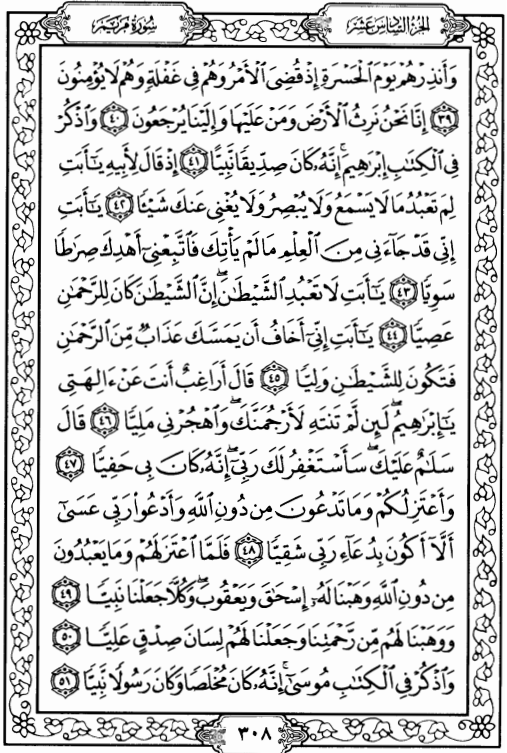 سورة مريم
الجزء السادس عشر
وَأَنذِرْهُمْ يَوْمَ ٱلْحَسْرَةِ إِذْ قُضِىَ ٱلْأَمْرُ وَهُمْ فِى غَفْلَةٍ وَهُمْ لَا يُؤْمِنُونَ
٣٩ إِنَّا نَحْنُ نَرِثُ ٱلْأَرْضَ وَمَنْ عَلَيْهَا وَإِلَيْنَا يُرْجَعُونَ ٤٠ وَٱذْكُرْ
فِى ٱلْكِتَٰبِ إِبْرَٰهِيمَ ۚ إِنَّهُۥ كَانَ صِدِّيقًا نَّبِيًّا ٤١ إِذْ قَالَ لِأَبِيهِ يَٰٓأَبَتِ
لِمَ تَعْبُدُ مَا لَا يَسْمَعُ وَلَا يُبْصِرُ وَلَا يُغْنِى عَنكَ شَيْـًٔا ٤٢ يَٰٓأَبَتِ
إِنِّى قَدْ جَآءَنِى مِنَ ٱلْعِلْمِ مَا لَمْ يَأْتِكَ فَٱتَّبِعْنِىٓ أَهْدِكَ صِرَٰطًا
سَوِيًّا ٤٣ يَٰٓأَبَتِ لَا تَعْبُدِ ٱلشَّيْطَٰنَ ۖ إِنَّ ٱلشَّيْطَٰنَ كَانَ لِلرَّحْمَٰنِ
عَصِيًّا ٤٤ يَٰٓأَبَتِ إِنِّىٓ أَخَافُ أَن يَمَسَّكَ عَذَابٌ مِّنَ ٱلرَّحْمَٰنِ
فَتَكُونَ لِلشَّيْطَٰنِ وَلِيًّا ٤٥ قَالَ أَرَاغِبٌ أَنتَ عَنْ ءَالِهَتِى
يَٰٓإِبْرَٰهِيمُ ۖ لَئِن لَّمْ تَنتَهِ لَأَرْجُمَنَّكَ ۖ وَٱهْجُرْنِى مَلِيًّا ٤٦ قَالَ
سَلَٰمٌ عَلَيْكَ ۖ سَأَسْتَغْفِرُ لَكَ رَبِّىٓ ۖ إِنَّهُۥ كَانَ بِى حَفِيًّا ٤٧
وَأَعْتَزِلُكُمْ وَمَا تَدْعُونَ مِن دُونِ ٱللَّهِ وَأَدْعُوا۟ رَبِّى عَسَىٰٓ
أَلَّآ أَكُونَ بِدُعَآءِ رَبِّى شَقِيًّا ٤٨ فَلَمَّا ٱعْتَزَلَهُمْ وَمَا يَعْبُدُونَ
مِن دُونِ ٱللَّهِ وَهَبْنَا لَهُۥٓ إِسْحَٰقَ وَيَعْقُوبَ ۖ وَكُلًّا جَعَلْنَا نَبِيًّا ٤٩
وَوَهَبْنَا لَهُم مِّن رَّحْمَتِنَا وَجَعَلْنَا لَهُمْ لِسَانَ صِدْقٍ عَلِيًّا ٥٠
وَٱذْكُرْ فِى ٱلْكِتَٰبِ مُوسَىٰٓ ۚ إِنَّهُۥ كَانَ مُخْلَصًا وَكَانَ رَسُولًا نَّبِيًّا ٥١
٣٠٨